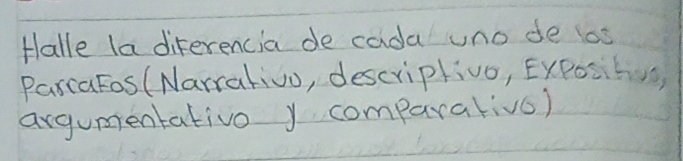 Halle la diferencia de cada uno de los
Parrafos (Narrativo, descriptivo, Expositivo,
argumentativo y comparativo)